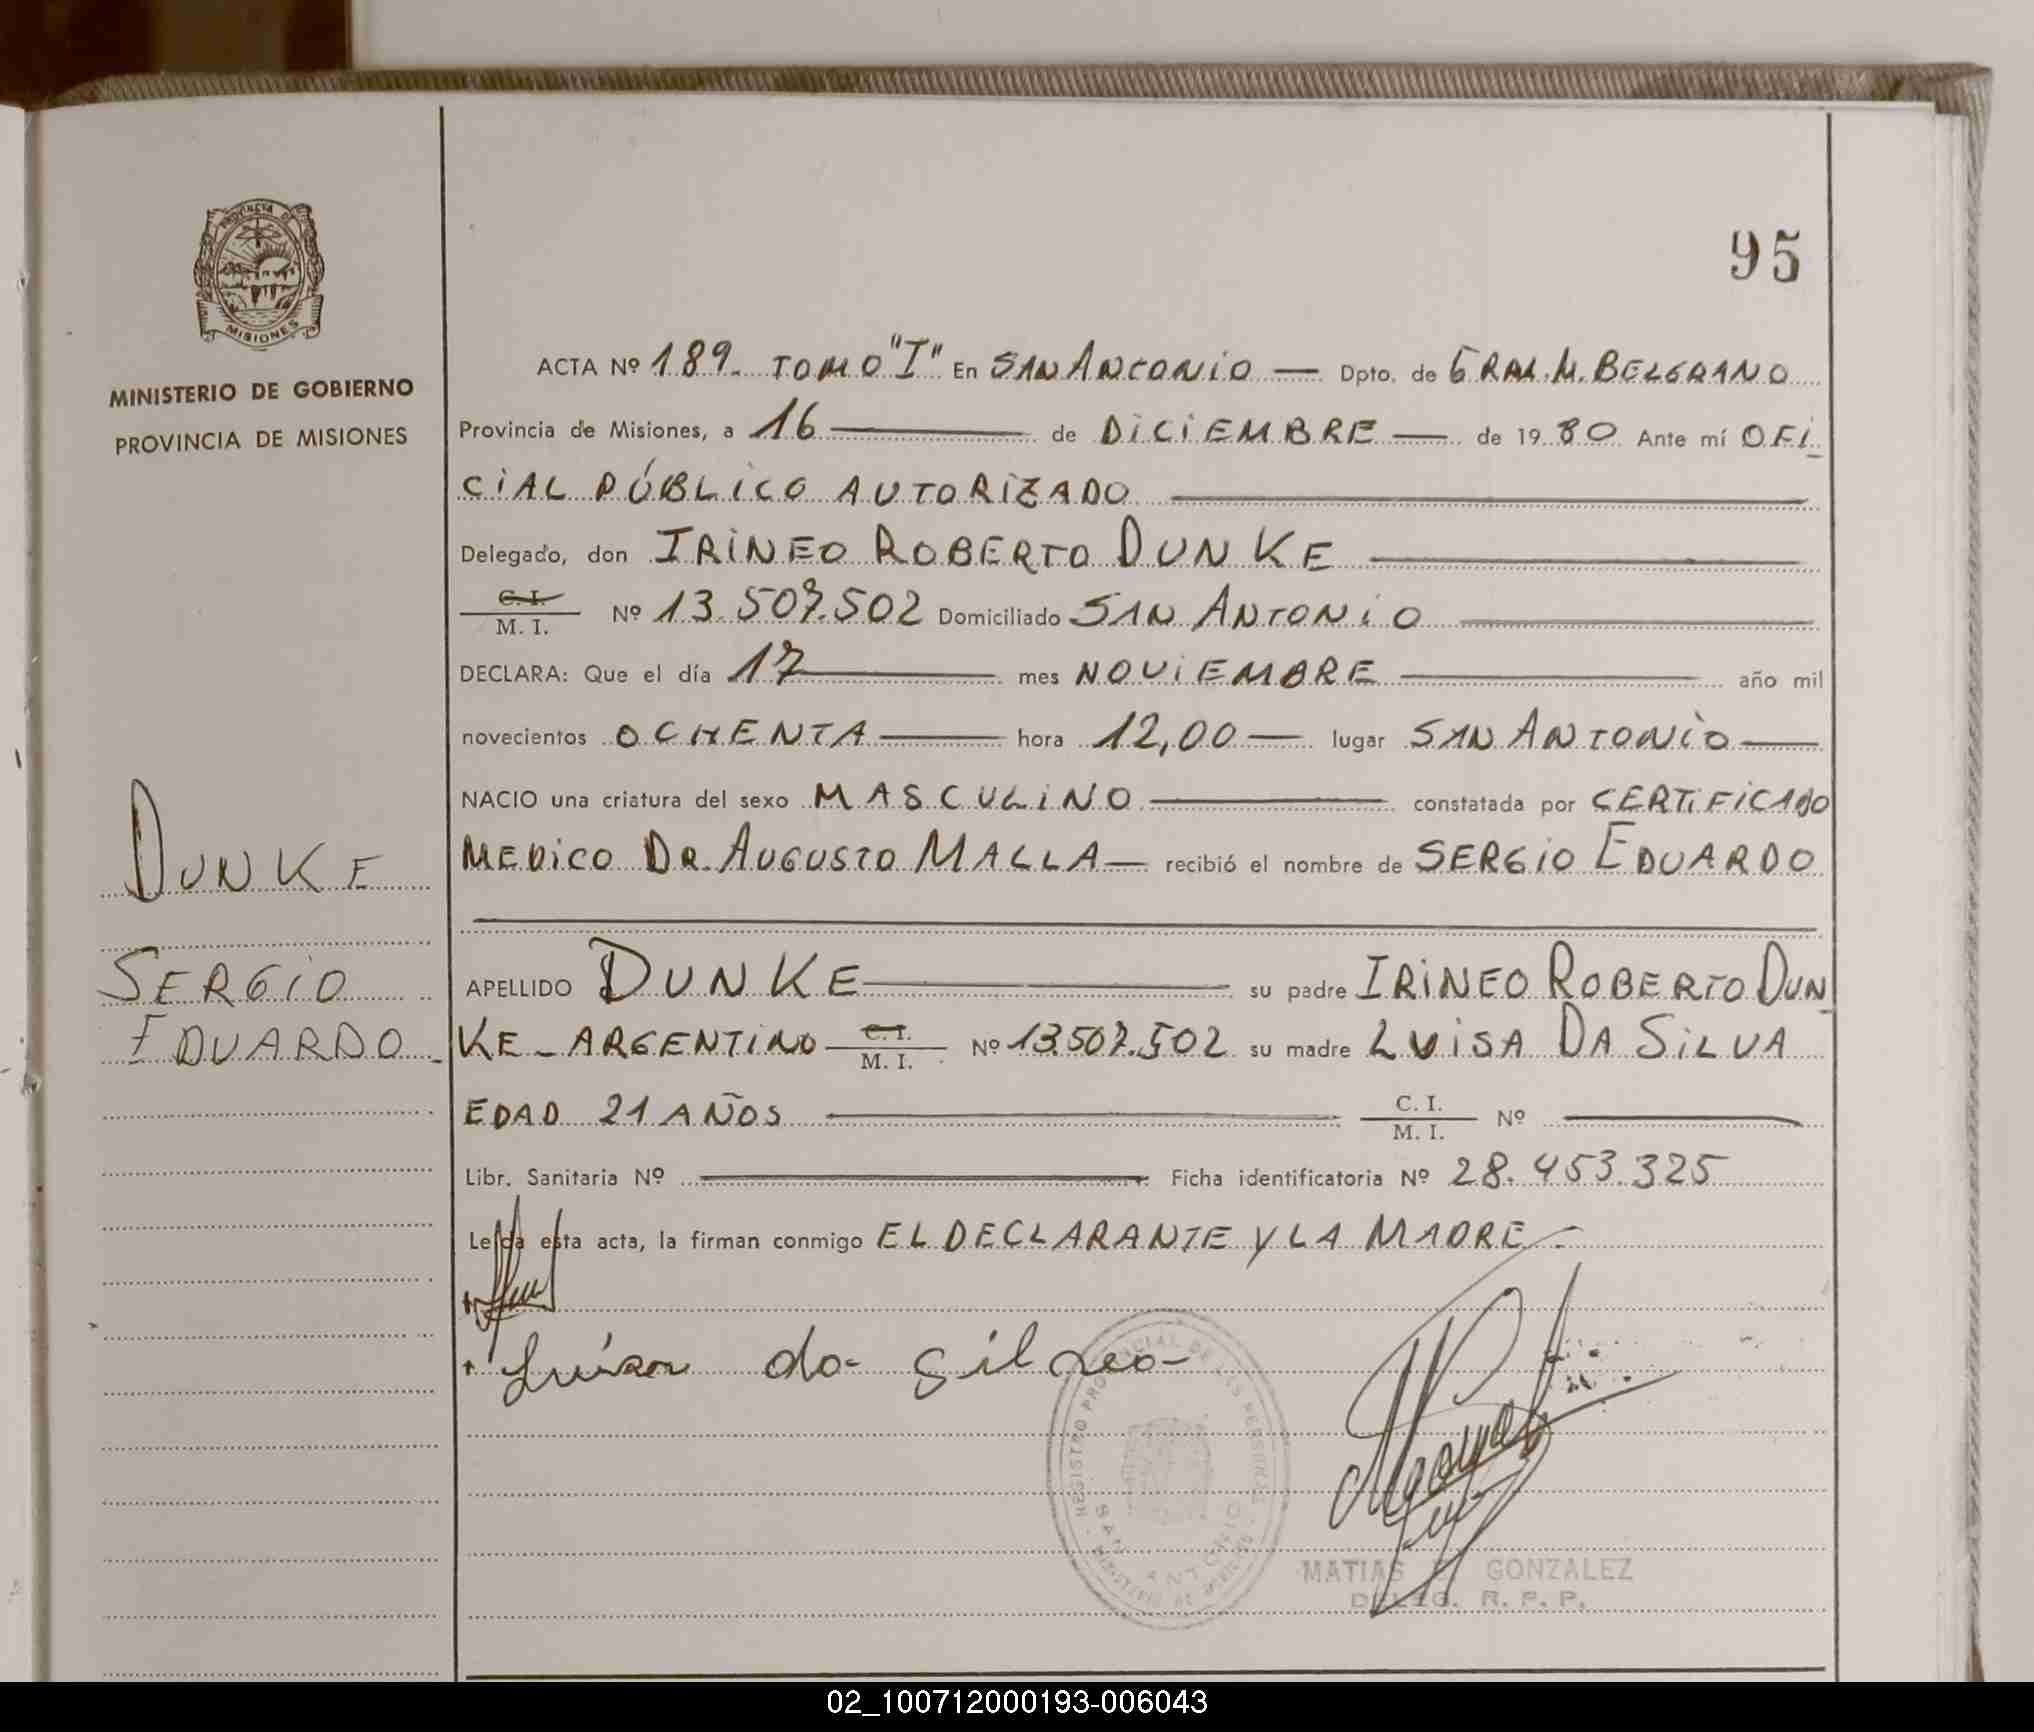 PROVINCIA DE
MISIONES
MINISTERIO DE GOBIERNO
PROVINCIA DE MISIONES
95
ACTA Nº 189. TOMO "I" En SAN ANTONIO — Dpto. de GRAL. M. BELGRANO
Provincia de Misiones, a 16 — de DICIEMBRE — de 1980 Ante mí OFI
CIAL PÚBLICO AUTORIZADO —
Delegado, don IRINEO ROBERTO DUNKE —
C. I.
M. I. Nº 13.507.502 Domiciliado SAN ANTONIO —
DECLARA: Que el día 17 — mes NOVIEMBRE — año mil
novecientos OCHENTA — hora 12,00 — lugar SAN ANTONIO —
NACIO una criatura del sexo MASCULINO — constatada por CERTIFICADO
MEDICO DR. AUGUSTO MALLA — recibió el nombre de SERGIO EDUARDO
DUNKE
SERGIO
EDUARDO
APELLIDO DUNKE — su padre IRINEO ROBERTO DUN
KE - ARGENTINO C. I. M. I. Nº 13.507.502 su madre LUISA DA SILVA
EDAD 21 AÑOS — C. I. M. I. Nº —
Libr. Sanitaria Nº — Ficha identificatoria Nº 28.453.325
Leída esta acta, la firman conmigo EL DECLARANTE Y LA MADRE -
Luiza da Silva
REGISTRO PROVINCIAL DE LAS PERSONAS
SAN ANTONIO
MATIAS GONZALEZ
DELEG. R. P. P.
02_100712000193-006043